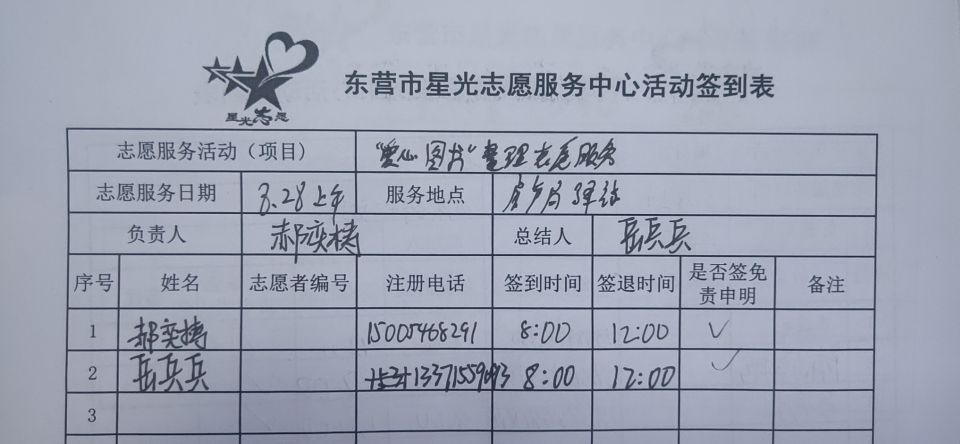 星光志愿
东营市星光志愿服务中心活动签到表
志愿服务活动（项目） "爱心图书"整理志愿服务
志愿服务日期 8.28上午 服务地点
负责人 郝奕梼 总结人 岳兵兵
序号 姓名 志愿者编号 注册电话 签到时间 签退时间 是否签免责申明 备注
1 郝奕梼 15005468291 8:00 12:00 ✓
2 岳兵兵 8:00 12:00 ✓
3